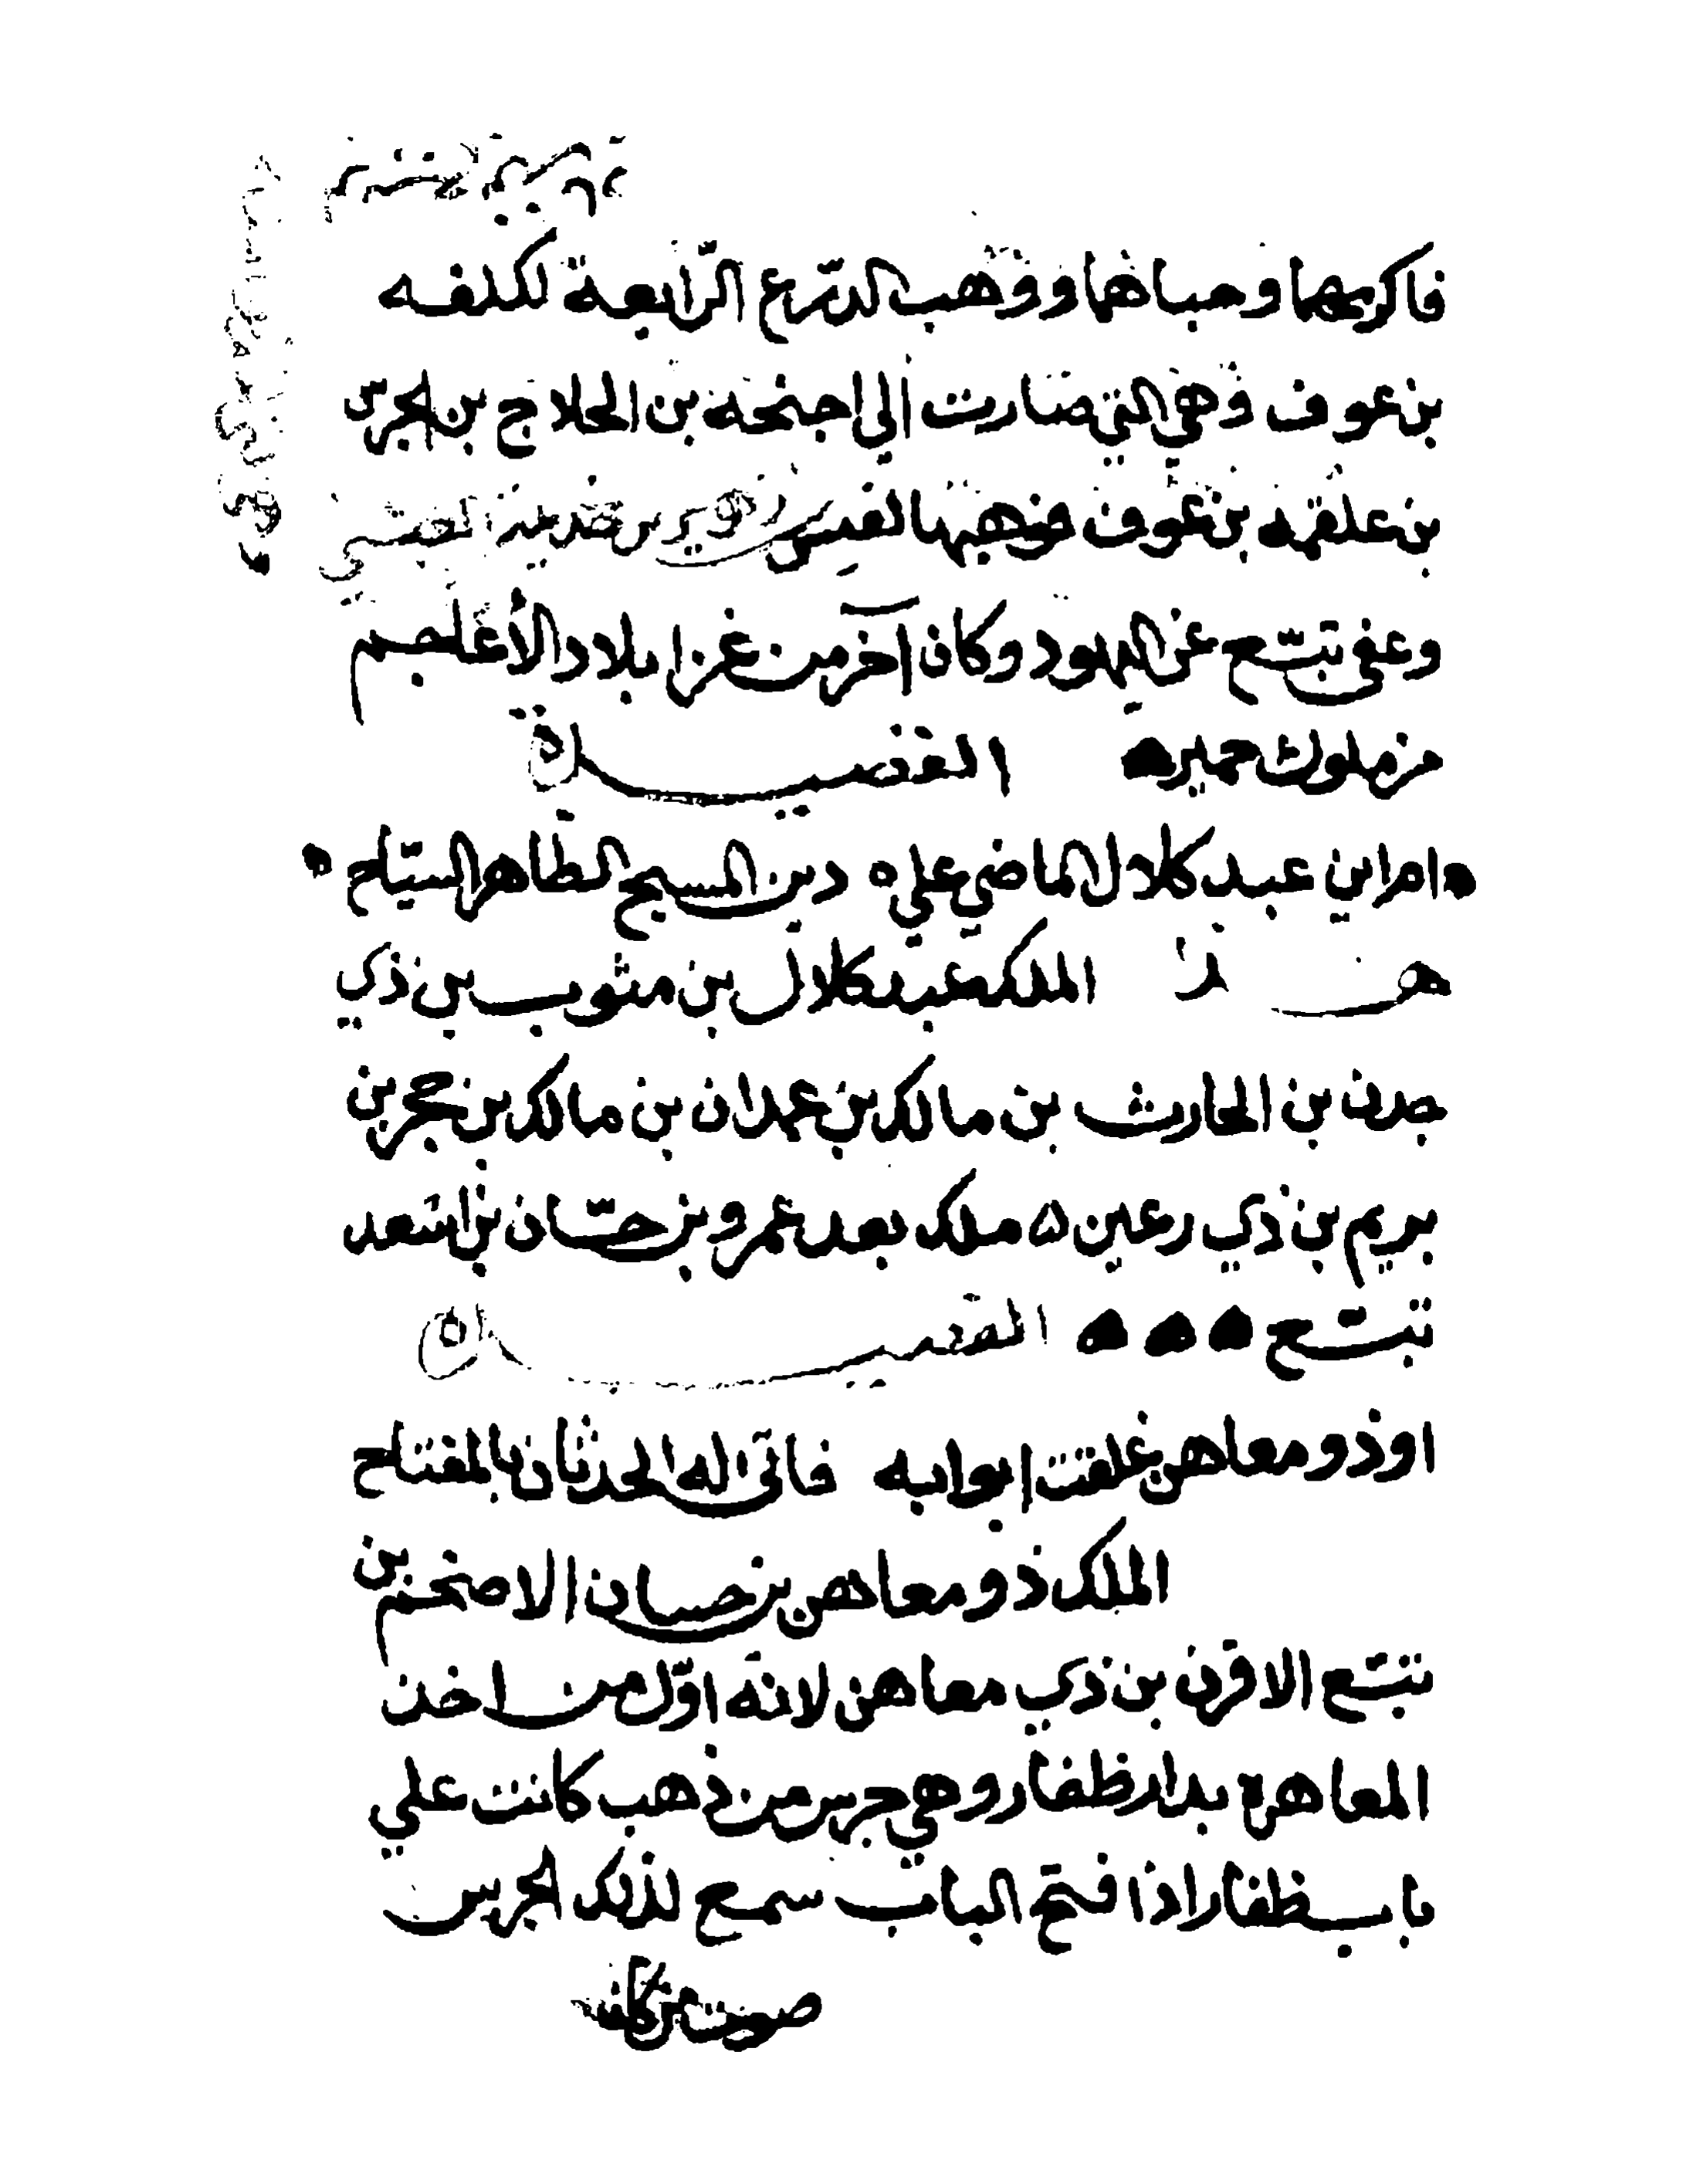 فاكرمهما وحباهما ووهب الدرع الرّابعة لكلفه
بن عوف وهي التي صارت الي احيحه بن الجلاج بن الجرس
بن علقمه بن عوف فوهبها لقيس بن زهير بن جذيمة العبسي
وعفى تبّع عن اليهود وكان آخر من غزا بلاد الأعاجم
من ملوك حمير ه القصيدة
ام اين عبد كلال الماضي علي ه دين المسيح الطاهر السيّاح
هذا الملك عبد كلال بن مثوب بن ذي
جدن بن الحارث بن مالك بن عيدان بن مالك بن حجر بن
يريم بن ذي رعين ه ملك بعد عمرو بن حسّان بن اسعد
تبّع ه ه ه القصيدة
او ذو معاهن غلقت ابوابه فاتى له الحدثان بالمفتاح
الملك ذو معاهن بن حسان الاصغر بن
تبّع الاقرن بن ذي معاهن لانه اوّل من اخذ
المعاهرة بدار ظفار وهي جرس من ذهب كانت علي
باب ظفار اذا فتح الباب سمع لذلك الجرس
صوت من